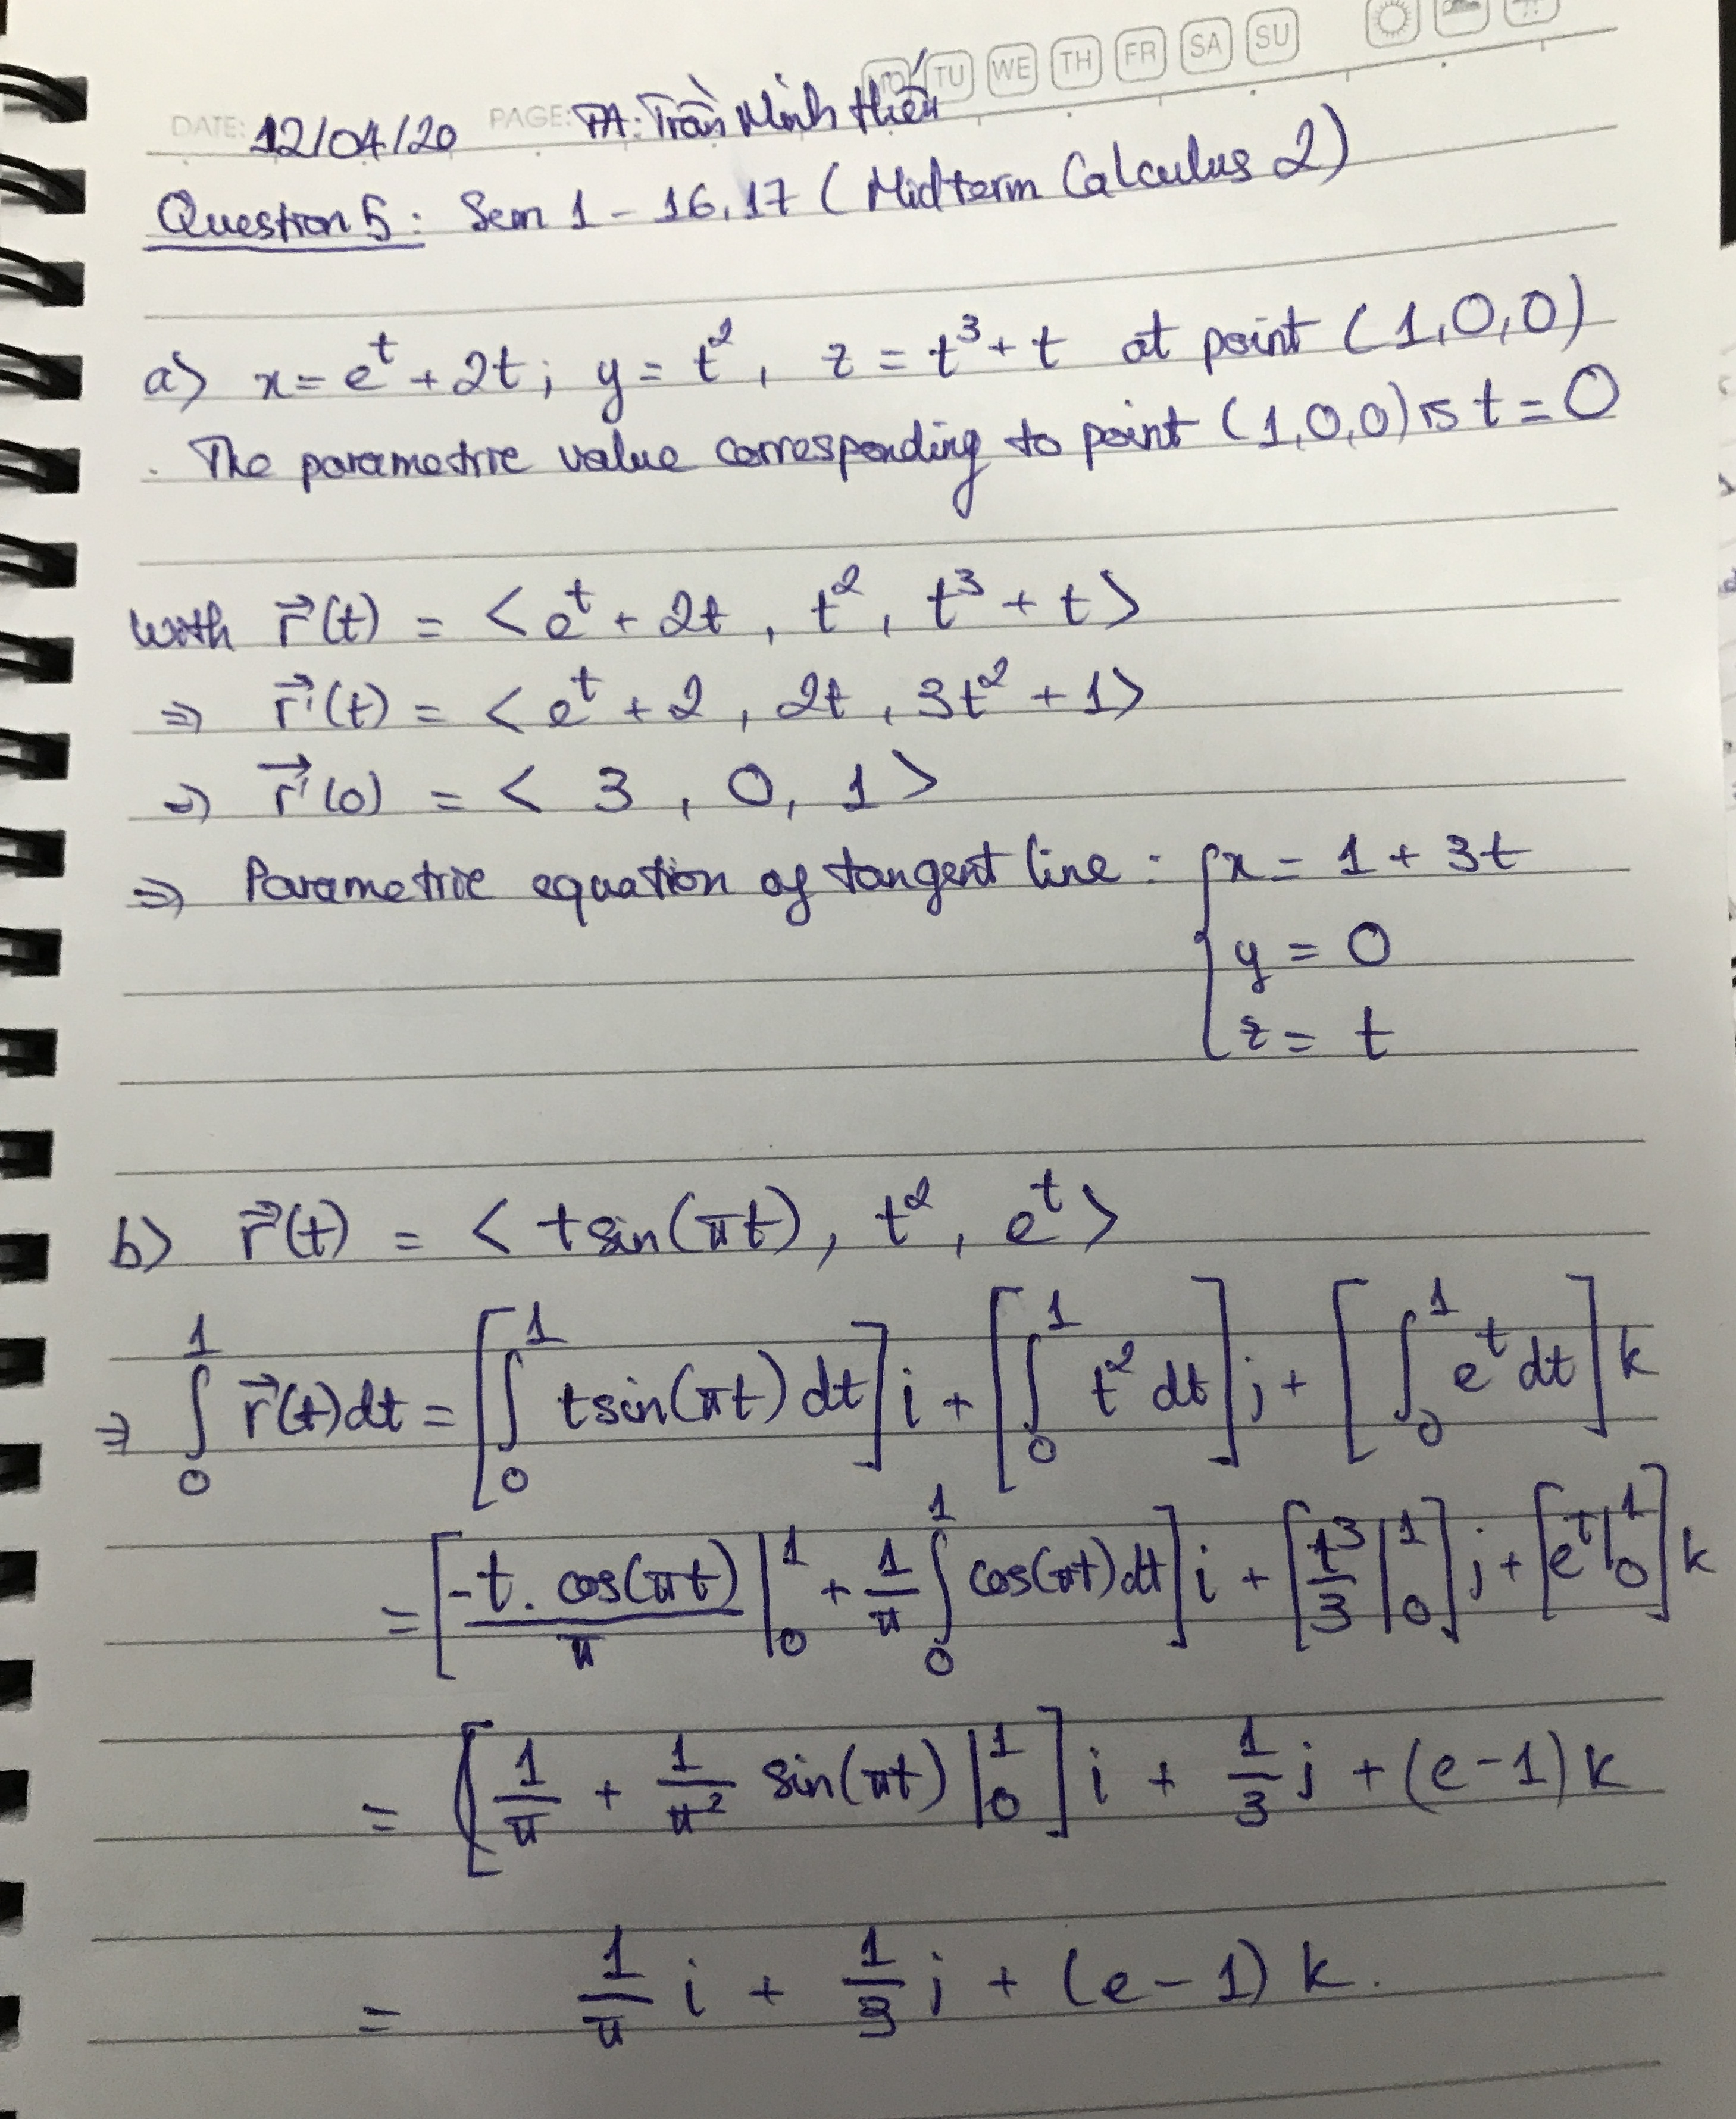 MO TU WE TH FR SA SU
DATE: 12/04/20 PAGE: TA: Trần Minh Hiếu
Question 5: Sem 1 - 16,17 (Midterm Calculus 2)
a) x = e^t + 2t; y = t^2, z = t^3 + t at point (1,0,0)
. The parametric value corresponding to point (1,0,0) is t = 0
With r⃗(t) = <e^t + 2t, t^2, t^3 + t>
⇒ r⃗'(t) = <e^t + 2, 2t, 3t^2 + 1>
⇒ r⃗'(0) = <3, 0, 1>
⇒ Parametric equation of tangent line: { x = 1 + 3t
y = 0
z = t
b) r⃗(t) = <t sin(πt), t^2, e^t>
⇒ ∫_0^1 r⃗(t)dt = [∫_0^1 t sin(πt) dt] i + [∫_0^1 t^2 dt] j + [∫_0^1 e^t dt] k
= [-t. cos(πt)/π |_0^1 + 1/π ∫_0^1 cos(πt) dt] i + [t^3/3 |_0^1] j + [e^t |_0^1] k
= [1/π + 1/π^2 sin(πt) |_0^1] i + 1/3 j + (e-1) k
= 1/π i + 1/3 j + (e-1) k.